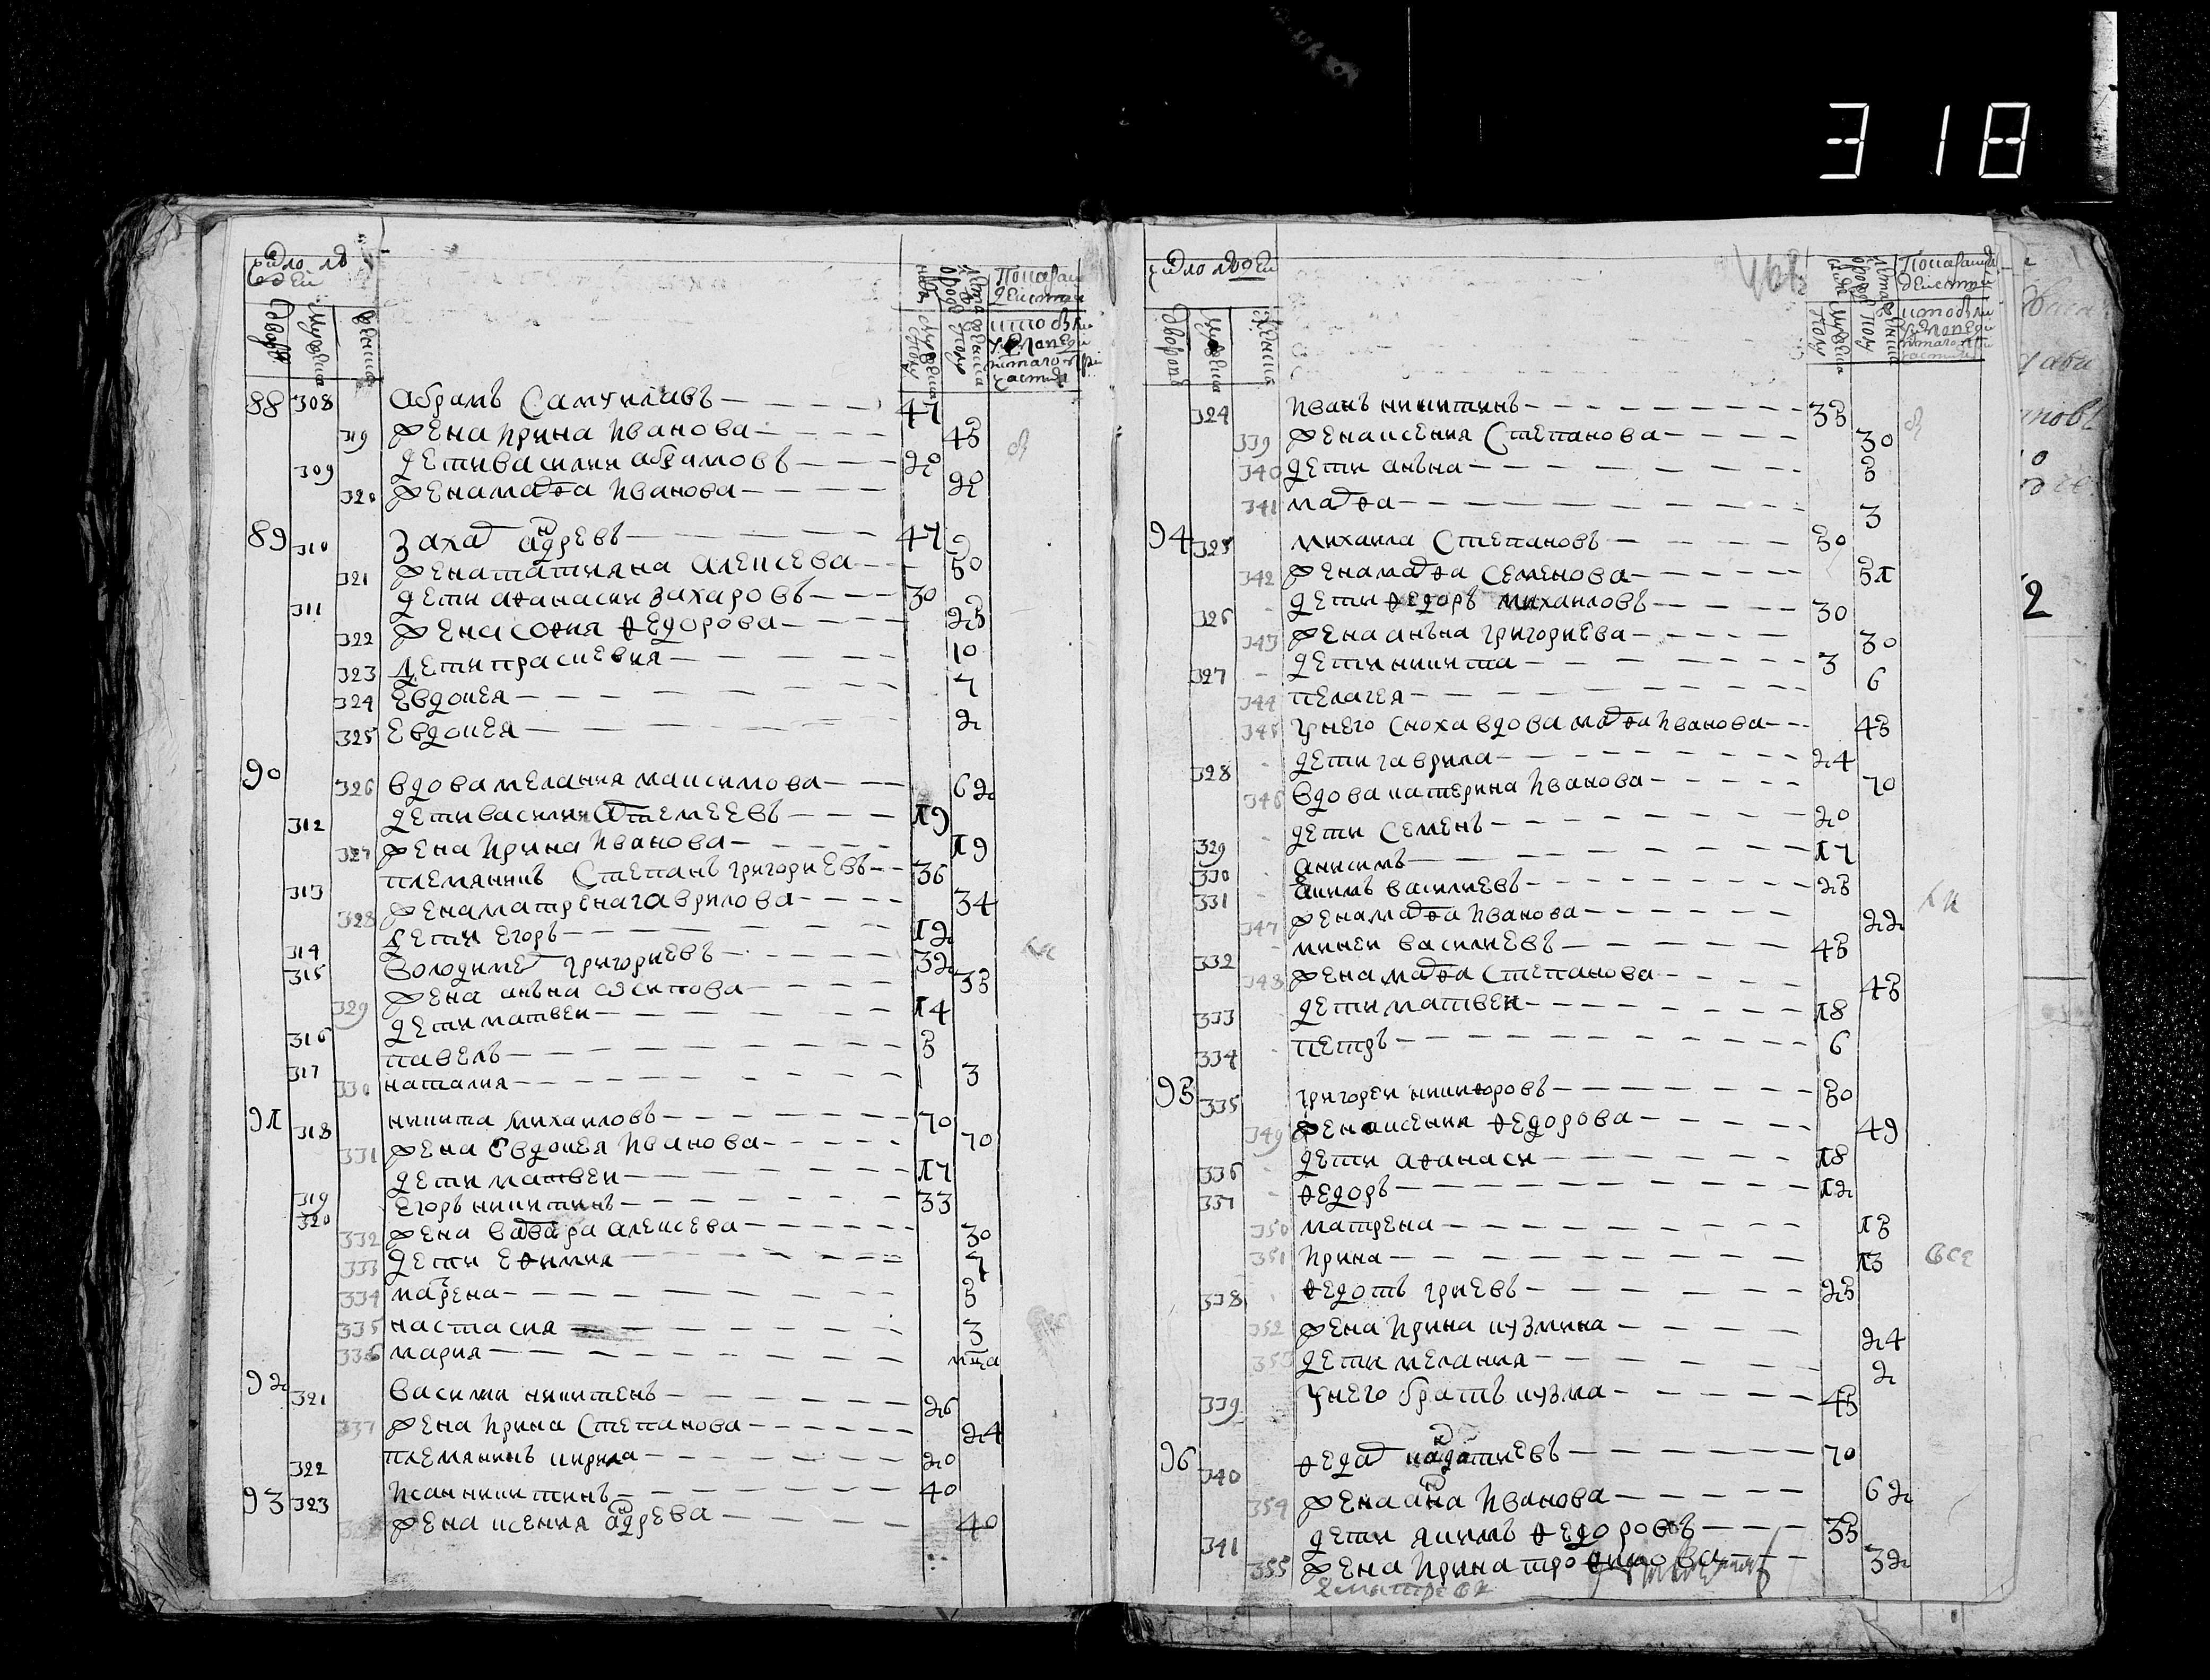 318
число людей
дворовъ
мужеска
женска
88 308 абрамъ Самуилавъ 47
319 жена ирина иванова 45
309 дети василии абрамовъ 20
320 жена марфа иванова 20
89 310 Захар андревъ 47
321 жена татияна алексева 50
311 дети афанасии захаровъ 30
322 жена софия федорова 25
323 дети прасковия 10
324 Евдокея 7
325 Евдокея 2
90
326 вдова мелания максимова 62
312 дети василии артемеевъ 19
327 жена ирина иванова 19
313 племянникъ Степанъ григориевъ 36
328 жена матрена гаврилова 34
314 дети егоръ 12
315 володимер григориевъ 32
329 жена анъна осипова 35
316 дети матвеи 14
317 павелъ 5
330 наталия 3
91 318 никита михаиловъ 70
331 жена Евдокея иванова 70
319 дети матвеи 17
320 Егоръ никитинъ 33
332 жена варвара алексева 30
333 дети Ефимия 7
334 марена 5
335 настасия 3
336 мария
92 321 василии никитенъ 26
337 жена ирина Степанова 24
322 племяникъ кирила 20
93 323 исаи никитинъ 40
жена ксения андрева 40
число людеи
дворовъ
мужеска
женска
324 иванъ никитинъ 35
339 жена ксения Степанова 30
340 дети анъна 5
341 марфа 3
94 325 михаила Степановъ 50
342 жена марфа семенова 51
326 дети федоръ михаиловъ 30
343 жена анъна григориева 30
327 дети никита 3
344 пелагея 6
345 у него сноха вдова марфа иванова 45
328 дети гаврила 24
346 вдова катерина иванова 70
329 дети Семенъ 20
330 анисимъ 17
331 екимъ василиевъ 25
347 жена марфа иванова 22
332 минеи василиевъ 45
348 жена марфа Степанова 45
333 дети матвеи 18
334 петръ 6
95 335 григореи никифоровъ 50
349 жена ксения федорова 49
336 дети афанаси 18
337 федоръ 12
350 матрена 15
351 ирина 13
338 федотъ григевъ 25
352 жена ирина кузмина 24
353 дети мелания 2
339 у него братъ кузма 45
96 340 федар кадратиевъ 70
354 жена анна иванова 62
341 дети якимъ федоровъ 35
355 жена ирина трофимова 32